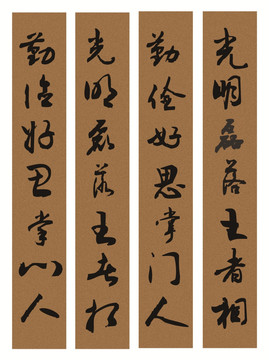 光明磊落王者相
勤俭好思掌门人
光明磊落王者相
勤俭好思掌门人